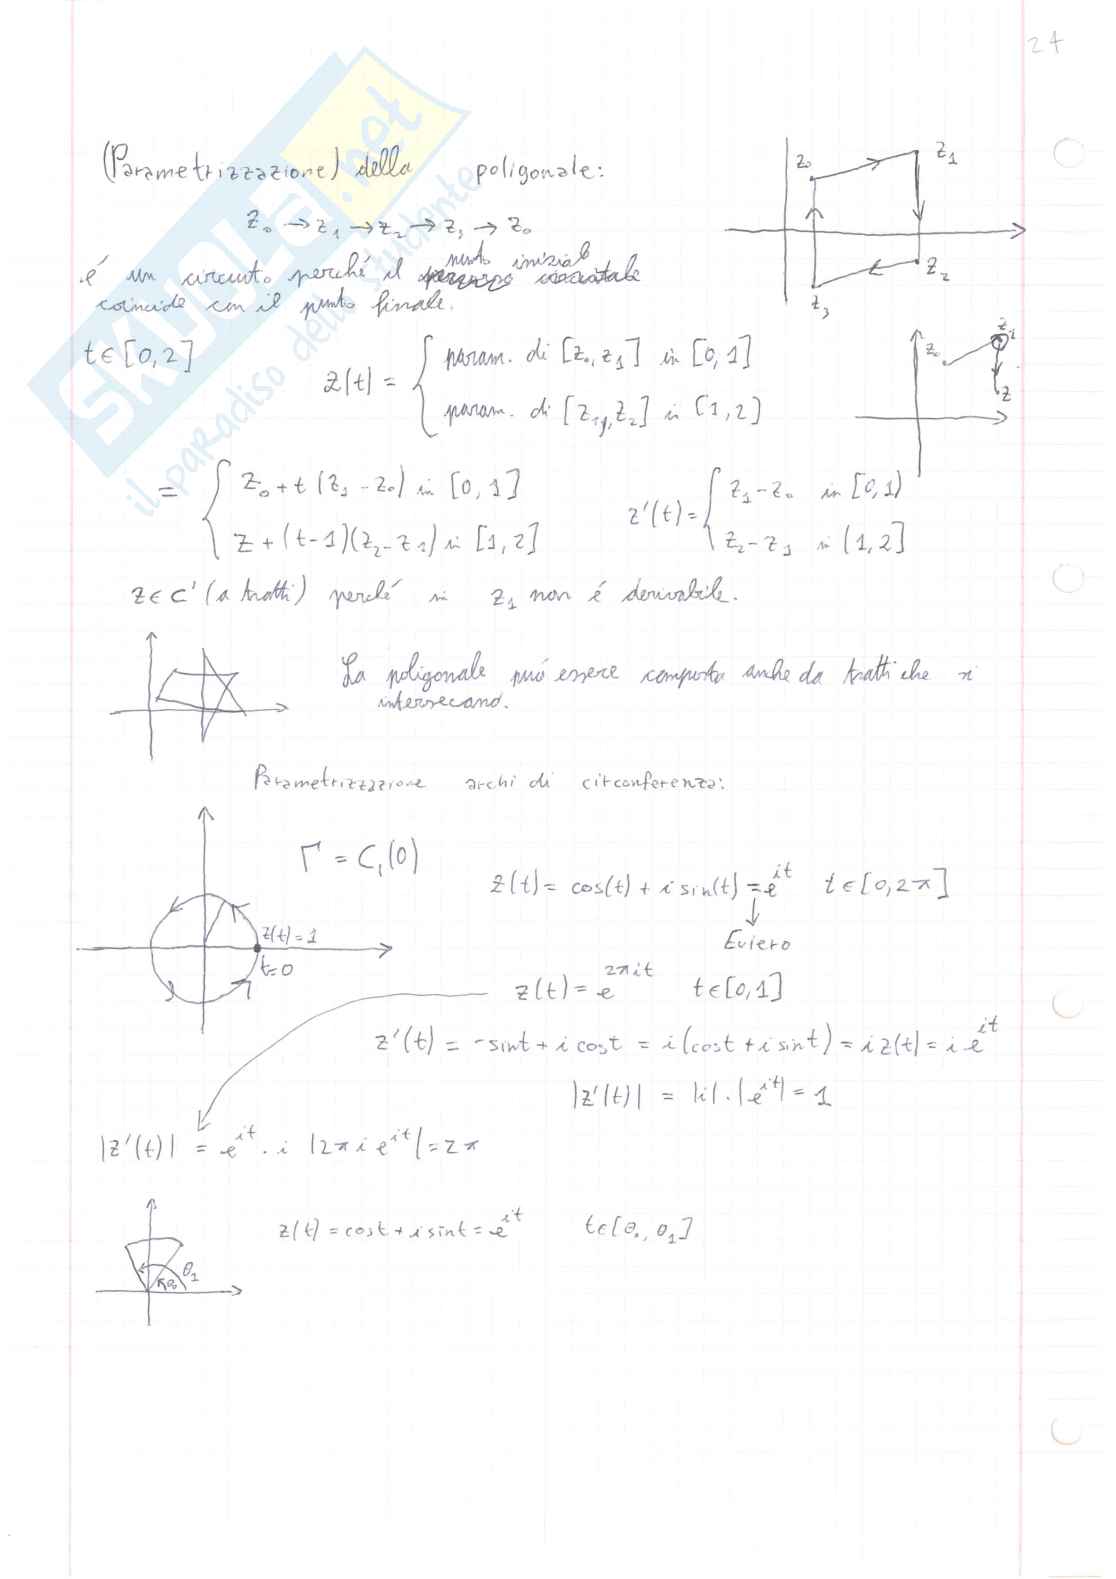 24
(Parametrizzazione) della poligonale:
z₀ → z₁ → z₂ → z₃ → z₀
é un circuito perché il punto inizial
coincide con il punto finale.
z₀ z₁ z₂ z₃
t ∈ [0,2]
z(t) = { param. di [z₀, z₁] in [0,1]
param. di [z₁, z₂] in [1,2]
z₀ z₁ z
= { z₀ + t (z₁ - z₀) in [0,1]
z + (t-1)(z₂ - z₁) in [1,2]
z'(t) = { z₁ - z₀ in [0,1)
z₂ - z₁ in (1,2]
z ∈ C' (a tratti) perché in z₁ non é derivabile.
La poligonale puó essere composta anche da tratti che si
intersecano.
Parametrizzazione archi di circonferenza:
Γ = C₁(0)
z(t) = cos(t) + i sin(t) = e^{it} t ∈ [0,2π]
Eulero
z(t) = 1
t=0
z(t) = e^{2πit} t ∈ [0,1]
z'(t) = -sint + i cost = i (cost + i sint) = i z(t) = i e^{it}
|z'(t)| = |i| · |e^{it}| = 1
|z'(t)| = e^{it} · i |2π i e^{it}| = 2π
z(t) = cost + i sint = e^{it} t ∈ [θ₀, θ₁]
θ₁
θ₀
SKUOLA.net
il paradiso dello studente